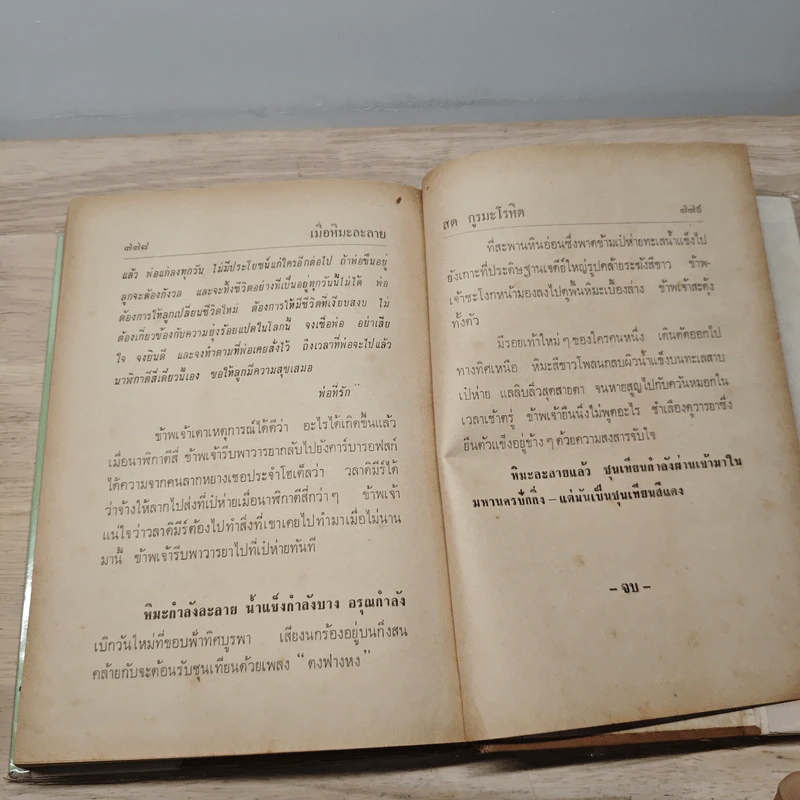 ๗๗๘ เมื่อหิมะละลาย
แล้ว พ่อแก่ลงทุกวัน ไม่มีประโยชน์แก่ใครอีกต่อไป ถ้าพ่อขืนอยู่
ลูกจะต้องกังวล และจะทิ้งชีวิตอย่างที่เป็นอยู่ทุกวันนี้ไม่ได้ พ่อ
ต้องการให้ลูกเปลี่ยนชีวิตใหม่ ต้องการให้มีชีวิตที่เงียบสงบ ไม่
ต้องเกี่ยวข้องกับความยุ่งร้อยแปดในโลกนี้ จงเชื่อพ่อ อย่าเสีย
ใจ จงยินดี และจงทำตามที่พ่อเคยสั่งไว้ ถึงเวลาที่พ่อจะไปแล้ว
นาฬิกาตีสี่เดี๋ยวนี้เอง ขอให้ลูกมีความสุขเสมอ
พ่อที่รัก”
ข้าพเจ้าเดาเหตุการณ์ได้ดีว่า อะไรได้เกิดขึ้นแล้ว
เมื่อนาฬิกาตีสี่ ข้าพเจ้ารีบพาวารยากลับไปยังคาร์บารอฟสก์
ได้ความจากคนลากหยางเชอประจำโฮเต็ลว่า วลาดิมีร์ได้
ว่าจ้างให้ลากไปส่งที่เป๋ห่ายเมื่อนาฬิกาตีสี่กว่าๆ ข้าพเจ้า
แน่ใจว่าวลาดิมีร์ต้องไปทำสิ่งที่เขาเคยไปทำมาเมื่อไม่นาน
มานี้ ข้าพเจ้ารีบพาวารยาไปที่เป๋ห่ายทันที
หิมะกำลังละลาย น้ำแข็งกำลังบาง อรุณกำลัง
เบิกวันใหม่ที่ขอบฟ้าทิศบูรพา เสียงนกร้องอยู่บนกิ่งสน
คล้ายกับจะต้อนรับชุนเทียนด้วยเพลง “ตงฟางหง”
สด กูรมะโรหิต ๗๗๙
ที่สะพานหินอ่อนซึ่งพาดข้ามเป๋ห่ายทะเสน้ำแข็งไป
ยังเกาะที่ประดิษฐานเจดีย์ใหญ่รูปคล้ายระฆังสีขาว ข้าพ-
เจ้าชะโงกหน้ามองลงไปดูพื้นหิมะเบื้องล่าง ข้าพเจ้าสะดุ้ง
ทั้งตัว
มีรอยเท้าใหม่ๆ ของใครคนหนึ่ง เดินตัดออกไป
ทางทิศเหนือ หิมะสีขาวโพลนกลบผิวน้ำแข็งบนทะเลสาบ
เป๋ห่าย แลลิบลิ่วสุดสายตา จนหายสูญไปกับควันหมอกใน
เวลาเช้าตรู่ ข้าพเจ้ายืนนิ่งไม่พูดอะไร ชำเลืองดูวารยาซึ่ง
ยืนตัวแข็งอยู่ข้างๆ ด้วยความสงสารจับใจ
หิมะละลายแล้ว ชุนเทียนกำลังผ่านเข้ามาใน
มหานครปักกิ่ง – แต่มันเป็นชุนเทียนสีแดง
– จบ –